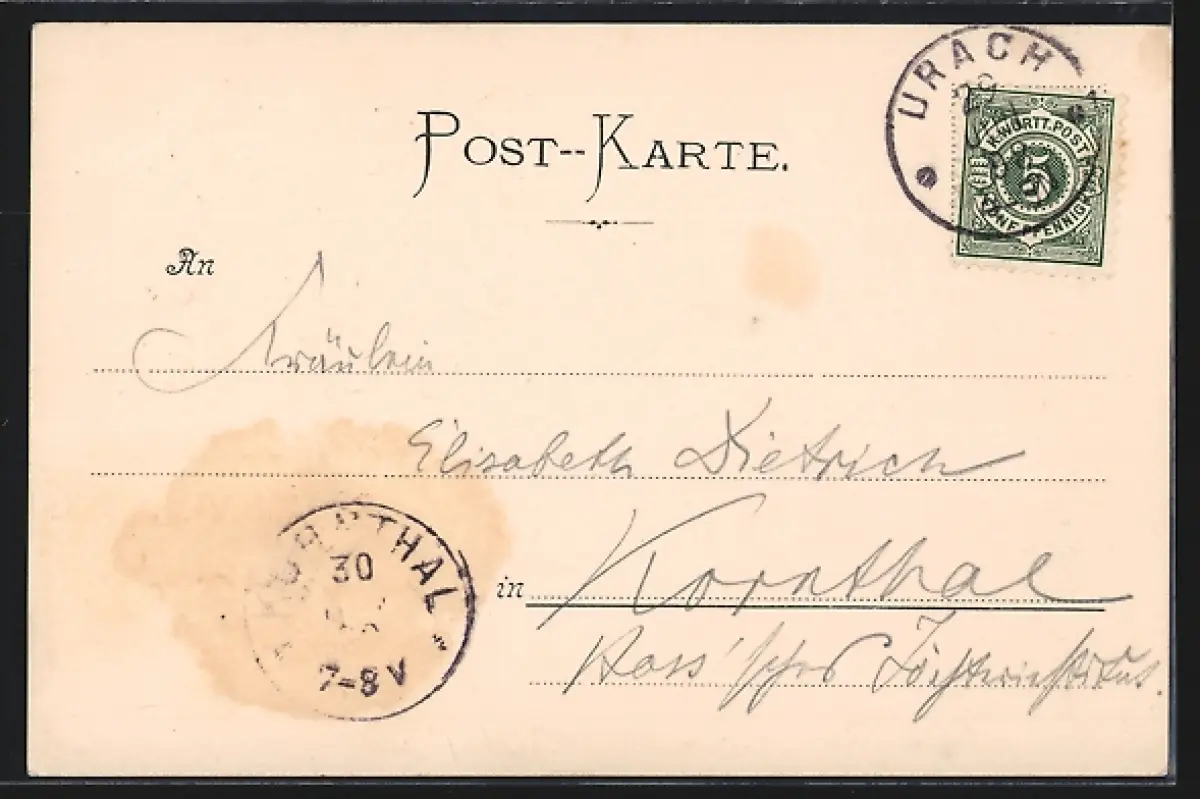 POST--KARTE.
URACH
29
K. WÜRTT. POST
5
FÜNF PFENNIG
An
Fräulein
Elisabeth Dietrich
in Kornthal
Töchterinstitut.
KORNTHAL
30
7-8 V